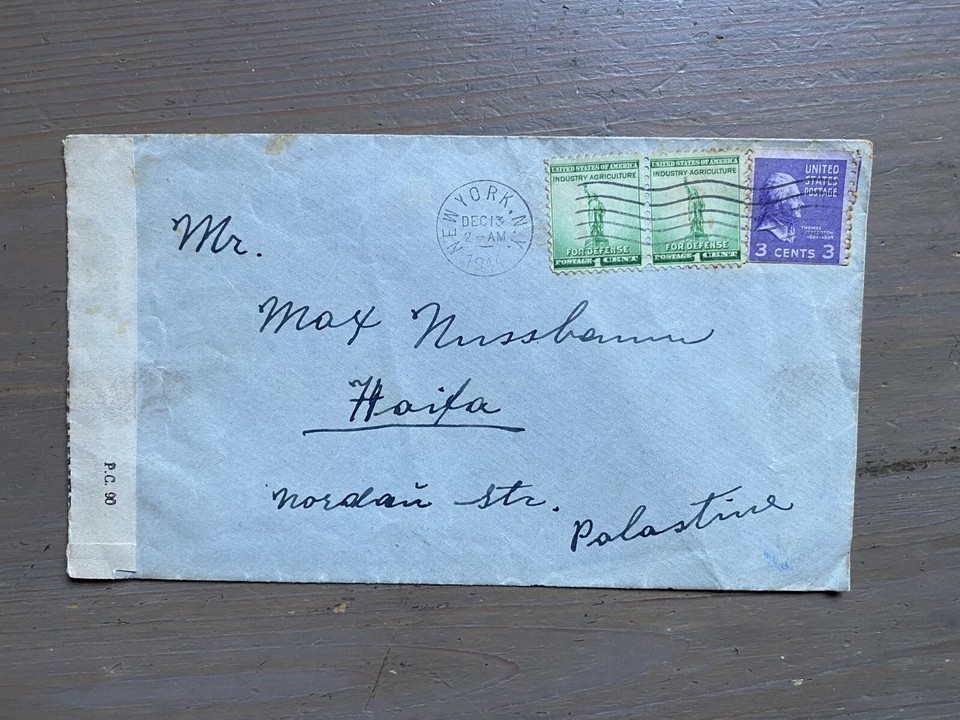 NEW YORK, N.Y.
DEC 13
2 - AM
UNITED STATES OF AMERICA
INDUSTRY AGRICULTURE
FOR DEFENSE
POSTAGE 1 CENT
UNITED STATES OF AMERICA
INDUSTRY AGRICULTURE
FOR DEFENSE
POSTAGE 1 CENT
UNITED
STATES
POSTAGE
THOMAS
JEFFERSON
1801-1809
3 CENTS 3
Mr.
Max Nussbaum
Haifa
Nordau str.
Palastine
P.C. 90